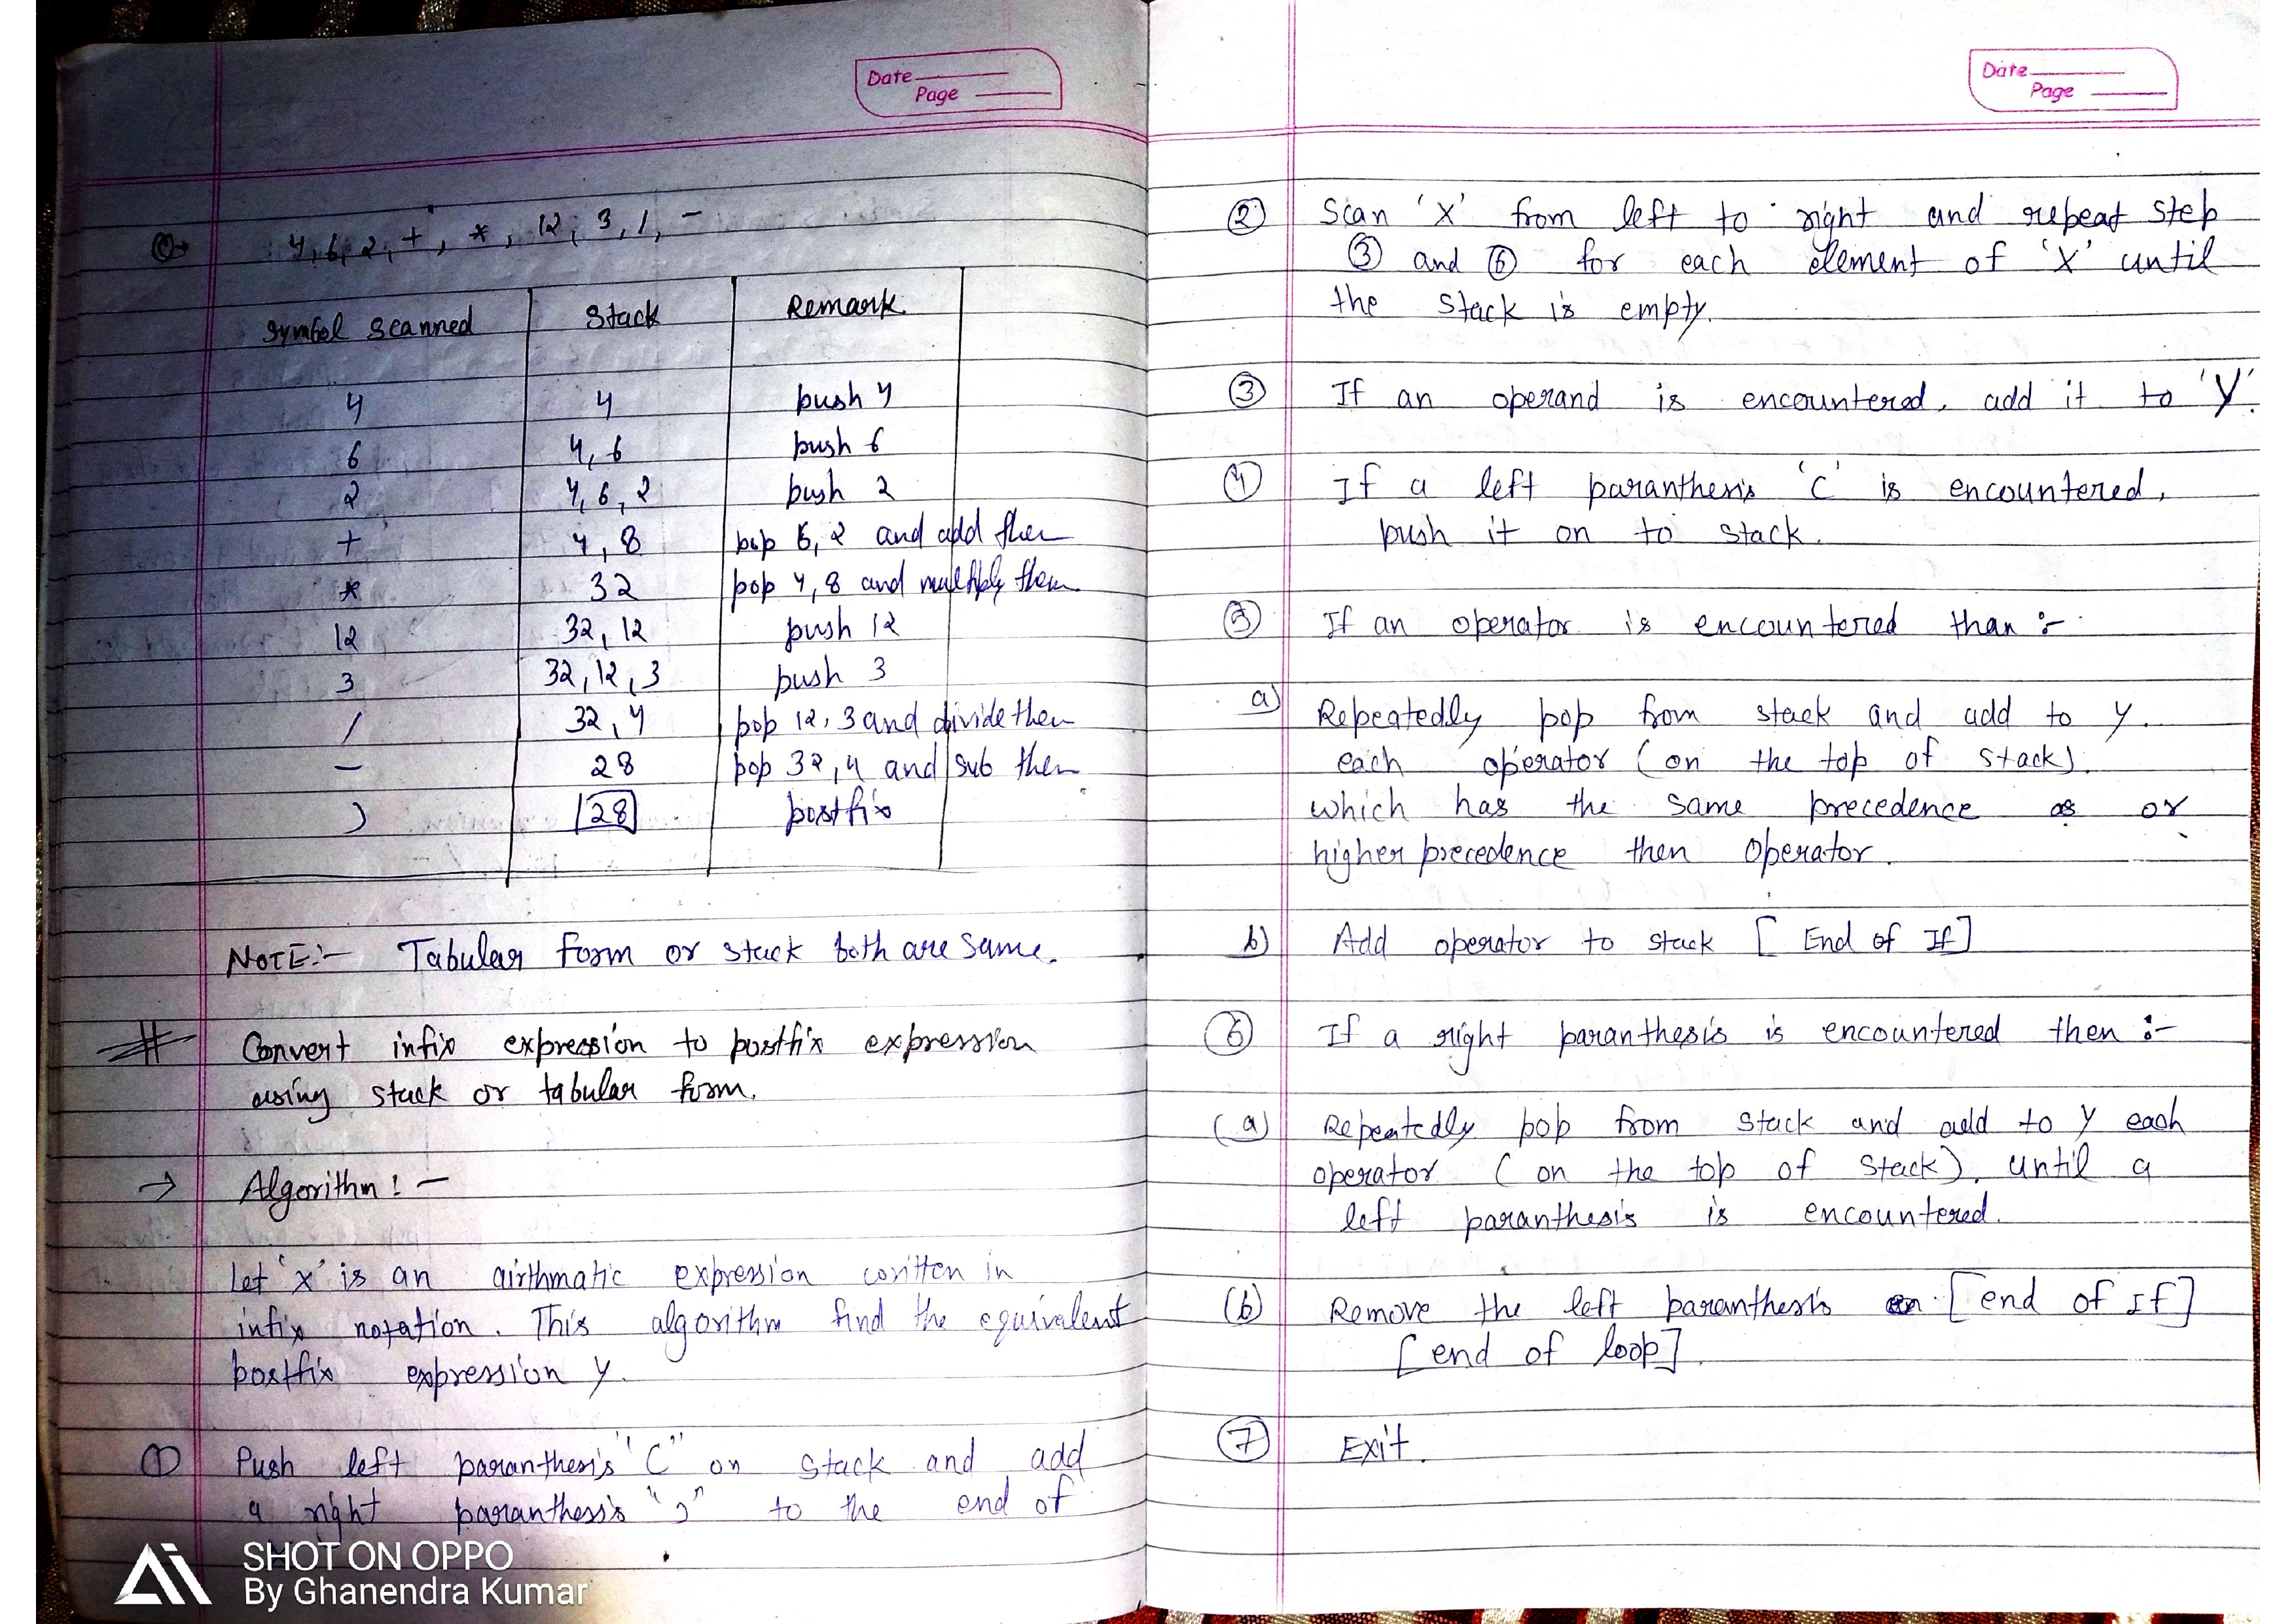 Date
Page
Q→ 4, 6, 2, +, *, 12, 3, /, -
Symbol scanned Stack Remark
4 4 push 4
6 4, 6 push 6
2 4, 6, 2 push 2
+ 4, 8 pop 6, 2 and add them
* 32 pop 4, 8 and multiply them
12 32, 12 push 12
3 32, 12, 3 push 3
/ 32, 4 pop 12, 3 and divide them
- 28 pop 32, 4 and sub them
) 28 postfix
NOTE:- Tabular Form or stack both are same.
# Convert infix expression to postfix expression
using stack or tabular form.
→ Algorithm:-
Let 'x' is an airthmatic expression written in
infix notation. This algorithm find the equivalent
postfix expression y.
① Push left paranthesis "(" on stack and add
a right paranthesis ")" to the end of
SHOT ON OPPO
By Ghanendra Kumar
Date
Page
② Scan 'X' from left to right and repeat step
③ and ⑥ for each element of 'X' until
the stack is empty.
③ If an operand is encountered, add it to 'Y'.
④ If a left paranthesis '(' is encountered,
push it on to stack.
⑤ If an operator is encountered than :-
a) Repeatedly pop from stack and add to y.
each operator (on the top of stack).
which has the same precedence as or
higher precedence then operator.
b) Add operator to stack [ End of If ]
⑥ If a right paranthesis is encountered then :-
(a) Repeatedly pop from stack and add to y each
operator ( on the top of stack), until a
left paranthesis is encountered.
(b) Remove the left paranthesis [end of If]
[end of loop].
⑦ Exit.